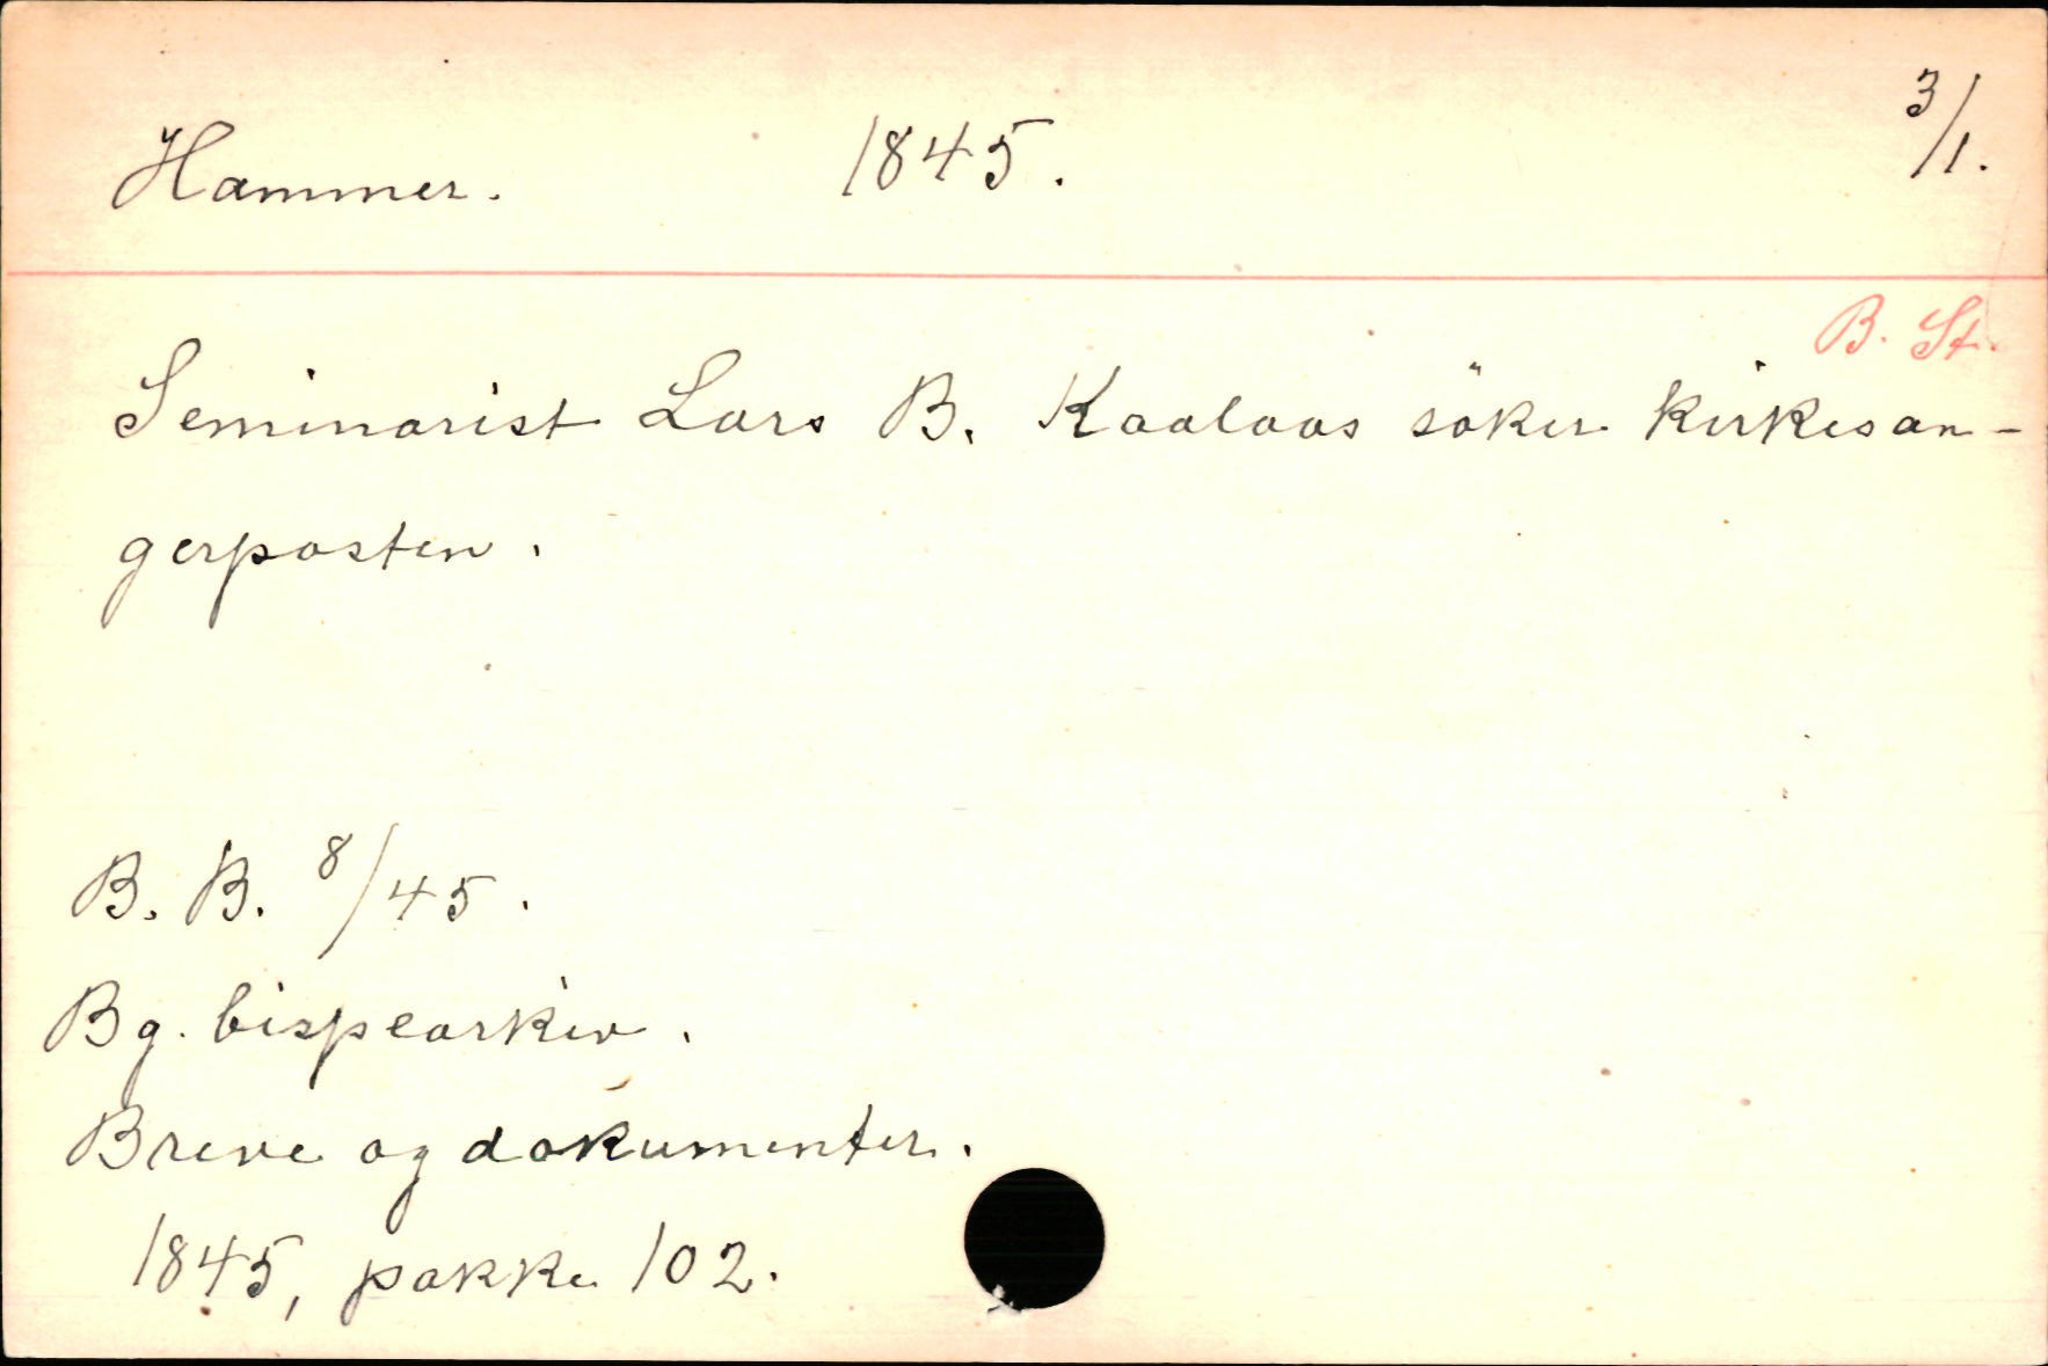 Hammer. 1845. 3/1.
B. St.
Seminarist Lars B. Kaalaas söker kirkesan-
gerposten.
B. B. 8/45.
Bg. bispearkiv.
Breve og dokumenter.
1845, pakke 102.